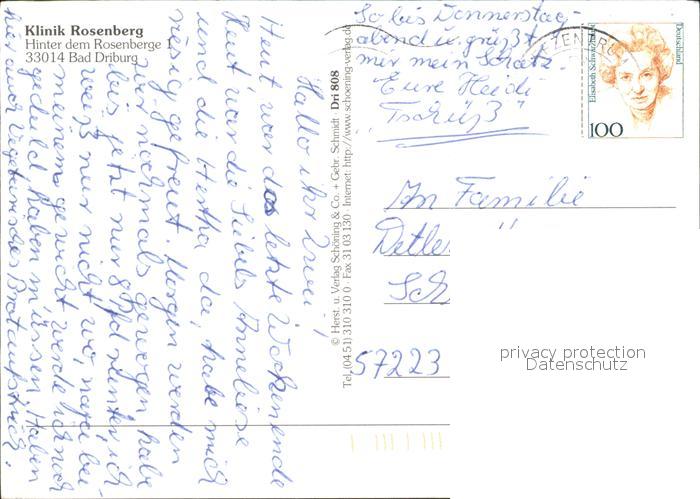 Klinik Rosenberg
Hinter dem Rosenberge
33014 Bad Driburg
Hallo ihr zwei!
Heut war das letzte Wochenende
Heut war die Anneliese
und die Hertha da, habe mich
riesig gefreut. Morgen werden
wir nochmals gewogen, habe
bis jetzt nur 8 Pfd runter, ich
weiß nur nicht wo, naja bei
meinem gewicht werde ich noch
geduld haben müssen. Haben
hier auch Vegetarisches Brotaufstrich.
So bis Donnerstag-
abend u. grüßt
mir mein Schatz
Eure Heidi
"Tschüß"
© Herst. u. Verlag Schöning & Co. + Gebr. Schmidt · Dri 808
Tel. (04 51) 310 310 0 · Fax 31 03 130 · Internet: http://www.schoening-verlag.de
Elisabeth Schwarzhaupt
Deutschland
100
An Familie
57223
privacy protection
Datenschutz